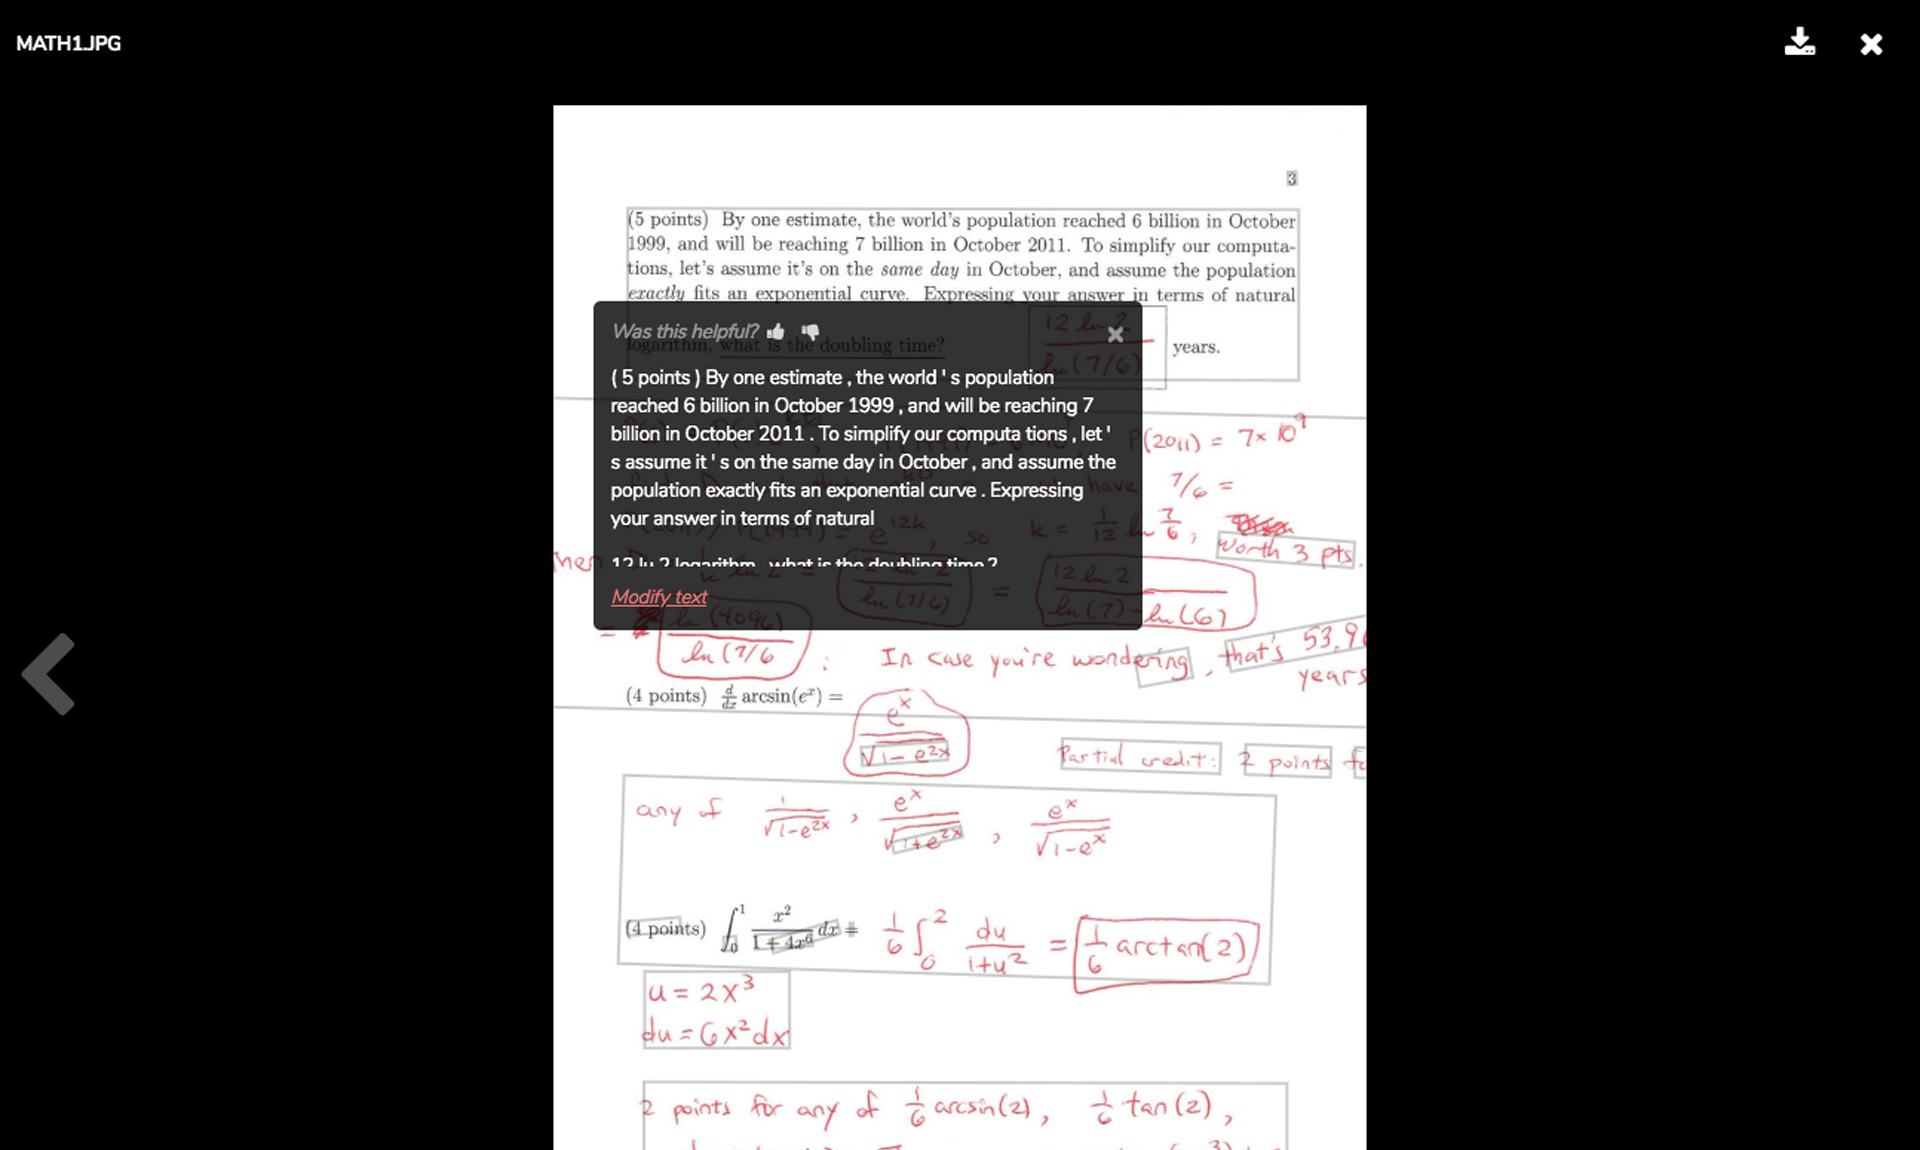 MATH1.JPG
3
(5 points) By one estimate, the world's population reached 6 billion in October
1999, and will be reaching 7 billion in October 2011. To simplify our computa-
tions, let's assume it's on the same day in October, and assume the population
exactly fits an exponential curve. Expressing your answer in terms of natural
Was this helpful?
logarithm, what is the doubling time? 12 ln 2 / ln(7/6) years.
( 5 points ) By one estimate , the world ' s population
reached 6 billion in October 1999 , and will be reaching 7
billion in October 2011 . To simplify our computa tions , let '
s assume it ' s on the same day in October , and assume the
population exactly fits an exponential curve . Expressing
your answer in terms of natural
12 lu 2 logarithm , what is the doubling time ?
Modify text
P(2011) = 7× 10⁹
have 7/6 =
e^12k, so k = 1/12 ln 7/6,
worth 3 pts.
ln 2 = ln(7/6) = 12 ln 2 / ln(7) - ln(6)
= ln(4096) / ln(7/6 : In case you're wondering, that's 53.9
years
(4 points) d/dx arcsin(eˣ) = eˣ / √1-e^2x
Partial credit: 2 points fo
any of 1/√1-e^2x , eˣ/√1+e^2x , eˣ/√1-eˣ
(4 points) ∫₀¹ x²/1+4x⁶ dx = 1/6 ∫₀² du/1+u² = 1/6 arctan(2)
u = 2x³
du = 6x²dx
2 points for any of 1/6 arcsin(2), 1/6 tan(2),